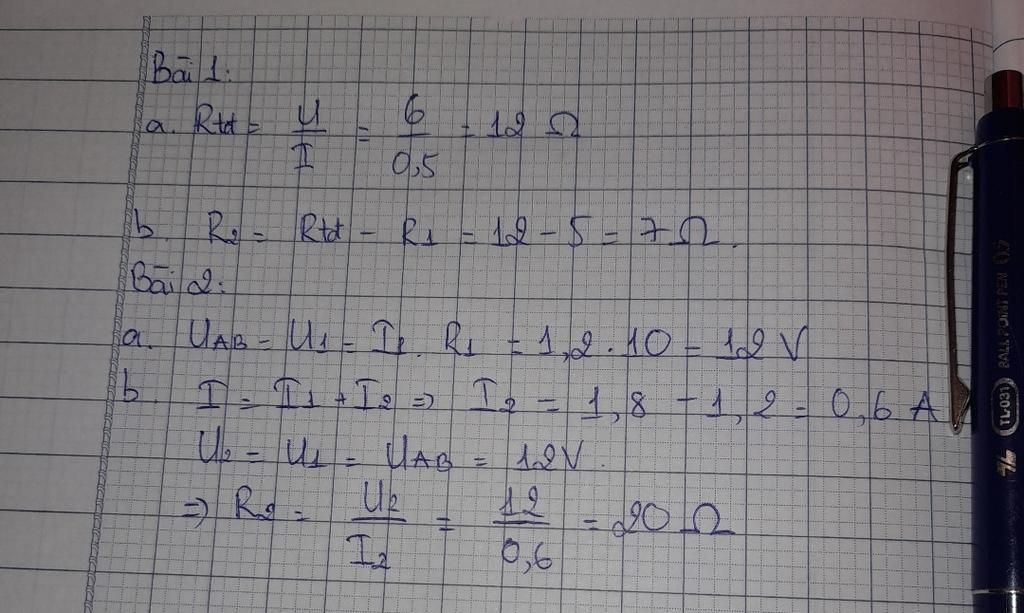 Bài 1:
a. Rtđ = U/I = 6/0,5 = 12 Ω
b. R2 = Rtđ - R1 = 12 - 5 = 7 Ω.
Bài 2:
a. UAB = U1 = I1. R1 = 1,2 . 10 = 12 V
b. I = I1 + I2 => I2 = 1,8 - 1,2 = 0,6 A
U2 = U1 = UAB = 12V.
=> R2 = U2/I2 = 12/0,6 = 20 Ω
TL-031 BALL POINT PEN 0.5
TL